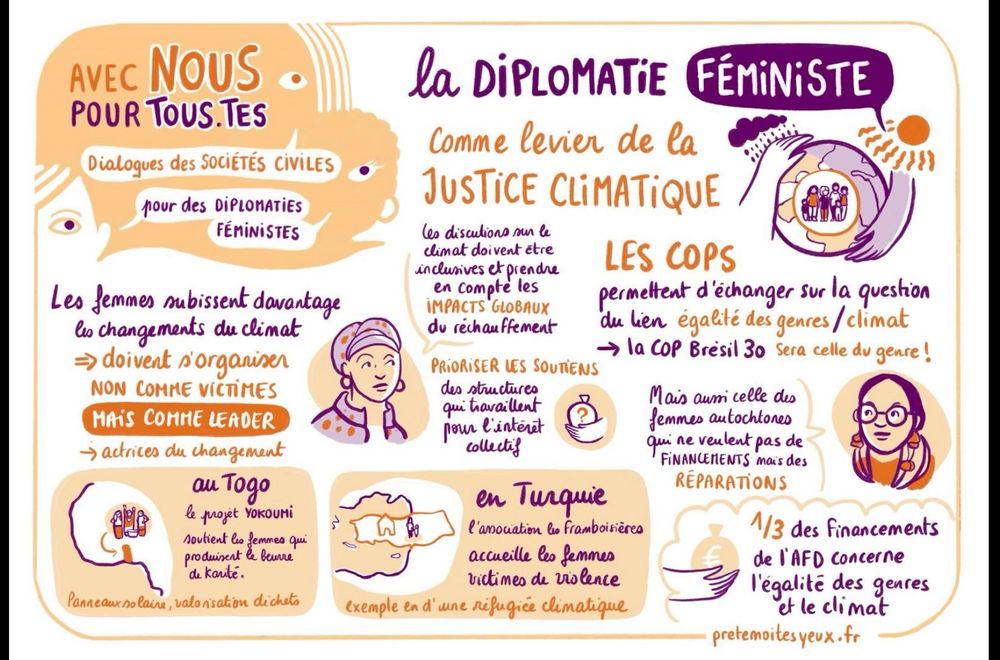 AVEC NOUS
POUR TOUS.TES
Dialogues des SOCIÉTÉS CIVILES
pour des DIPLOMATIES
FÉMINISTES
la DIPLOMATIE FÉMINISTE
Comme levier de la
JUSTICE CLIMATIQUE
Les femmes subissent davantage
les changements du climat
⇒ doivent s'organiser
NON COMME VICTIMES
MAIS COMME LEADER
→ actrices du changement
les discutions sur le
climat doivent être
inclusives et prendre
en compte les
IMPACTS GLOBAUX
du réchauffement
PRIORISER LES SOUTIENS
des structures
qui travaillent
pour l'intérêt
collectif
?
LES COPS
permettent d'échanger sur la question
du lien égalité des genres/climat
→ la COP Brésil 30 Sera celle du genre!
Mais aussi celle des
femmes autochtones
qui ne veulent pas de
FINANCEMENTS mais des
RÉPARATIONS
au Togo
le projet YOKOUMI
soutient les femmes qui
produisent le beurre
de karité.
Panneaux solaire, valorisation déchets
en Turquie
l'association les Framboisières
accueille les femmes
victimes de violence
exemple en d'une réfugiée climatique
€
1/3 des financements
de l'AFD concerne
l'égalité des genres
et le climat
pretemoitesyeux.fr